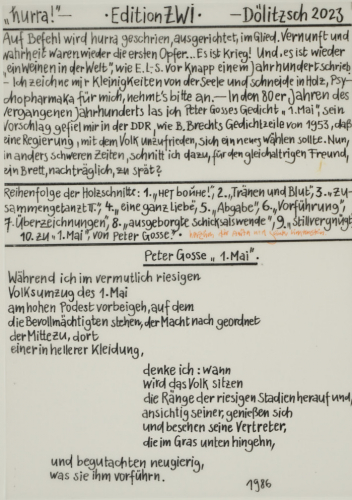 „hurra!"— · Edition ZWi · —Dölitzsch 2023
Auf Befehl wird hurra geschrien, ausgerichtet, im Glied. Vernunft und
Wahrheit waren wieder die ersten Opfer... Es ist Krieg! Und „es ist wieder
„ein Weinen in der Welt", wie E.L.-S. vor knapp einem Jahrhundert schrieb
– Ich zeichne mir Kleinigkeiten von der Seele und schneide in Holz, Psy-
chopharmaka für mich, nehmt's bitte an. — In den 80er Jahren des
vergangenen Jahrhunderts las ich Peter Gosses Gedicht „1. Mai", sein
Vorschlag gefiel mir in der DDR, wie B. Brechts Gedichtzeile von 1953, daß
eine Regierung, mit dem Volk unzufrieden, sich ein neues wählen sollte. Nun,
in anders schweren Zeiten, schnitt ich dazu, für den gleichaltrigen Freund,
ein Brett, nachträglich, zu spät?
Reihenfolge der Holzschnitte: 1. „Het boine!", 2. „Tränen und Blut", 3. „zu-
sammengetanzt II", 4. „eine ganz liebe", 5. „Abgabe", 6. „Vorführung",
7. „Überzeichnungen", 8. „ausgeborgte schicksalswende", 9. „Stillvergnügt
10. zu „1. Mai", von Peter Gosse". ·
Peter Gosse „1. Mai".
Während ich im vermutlich riesigen
Volksumzug des 1. Mai
am hohen Podest vorbeigeh, auf dem
die Bevollmächtigten stehen, der Macht nach geordnet
der Mitte zu, dort
einer in hellerer Kleidung,
denke ich: wann
wird das Volk sitzen
die Ränge der riesigen Stadien herauf und,
ansichtig seiner, genießen sich
und besehen seine Vertreter,
die im Gras unten hingehn,
und begutachten neugierig,
was sie ihm vorführn.
1986